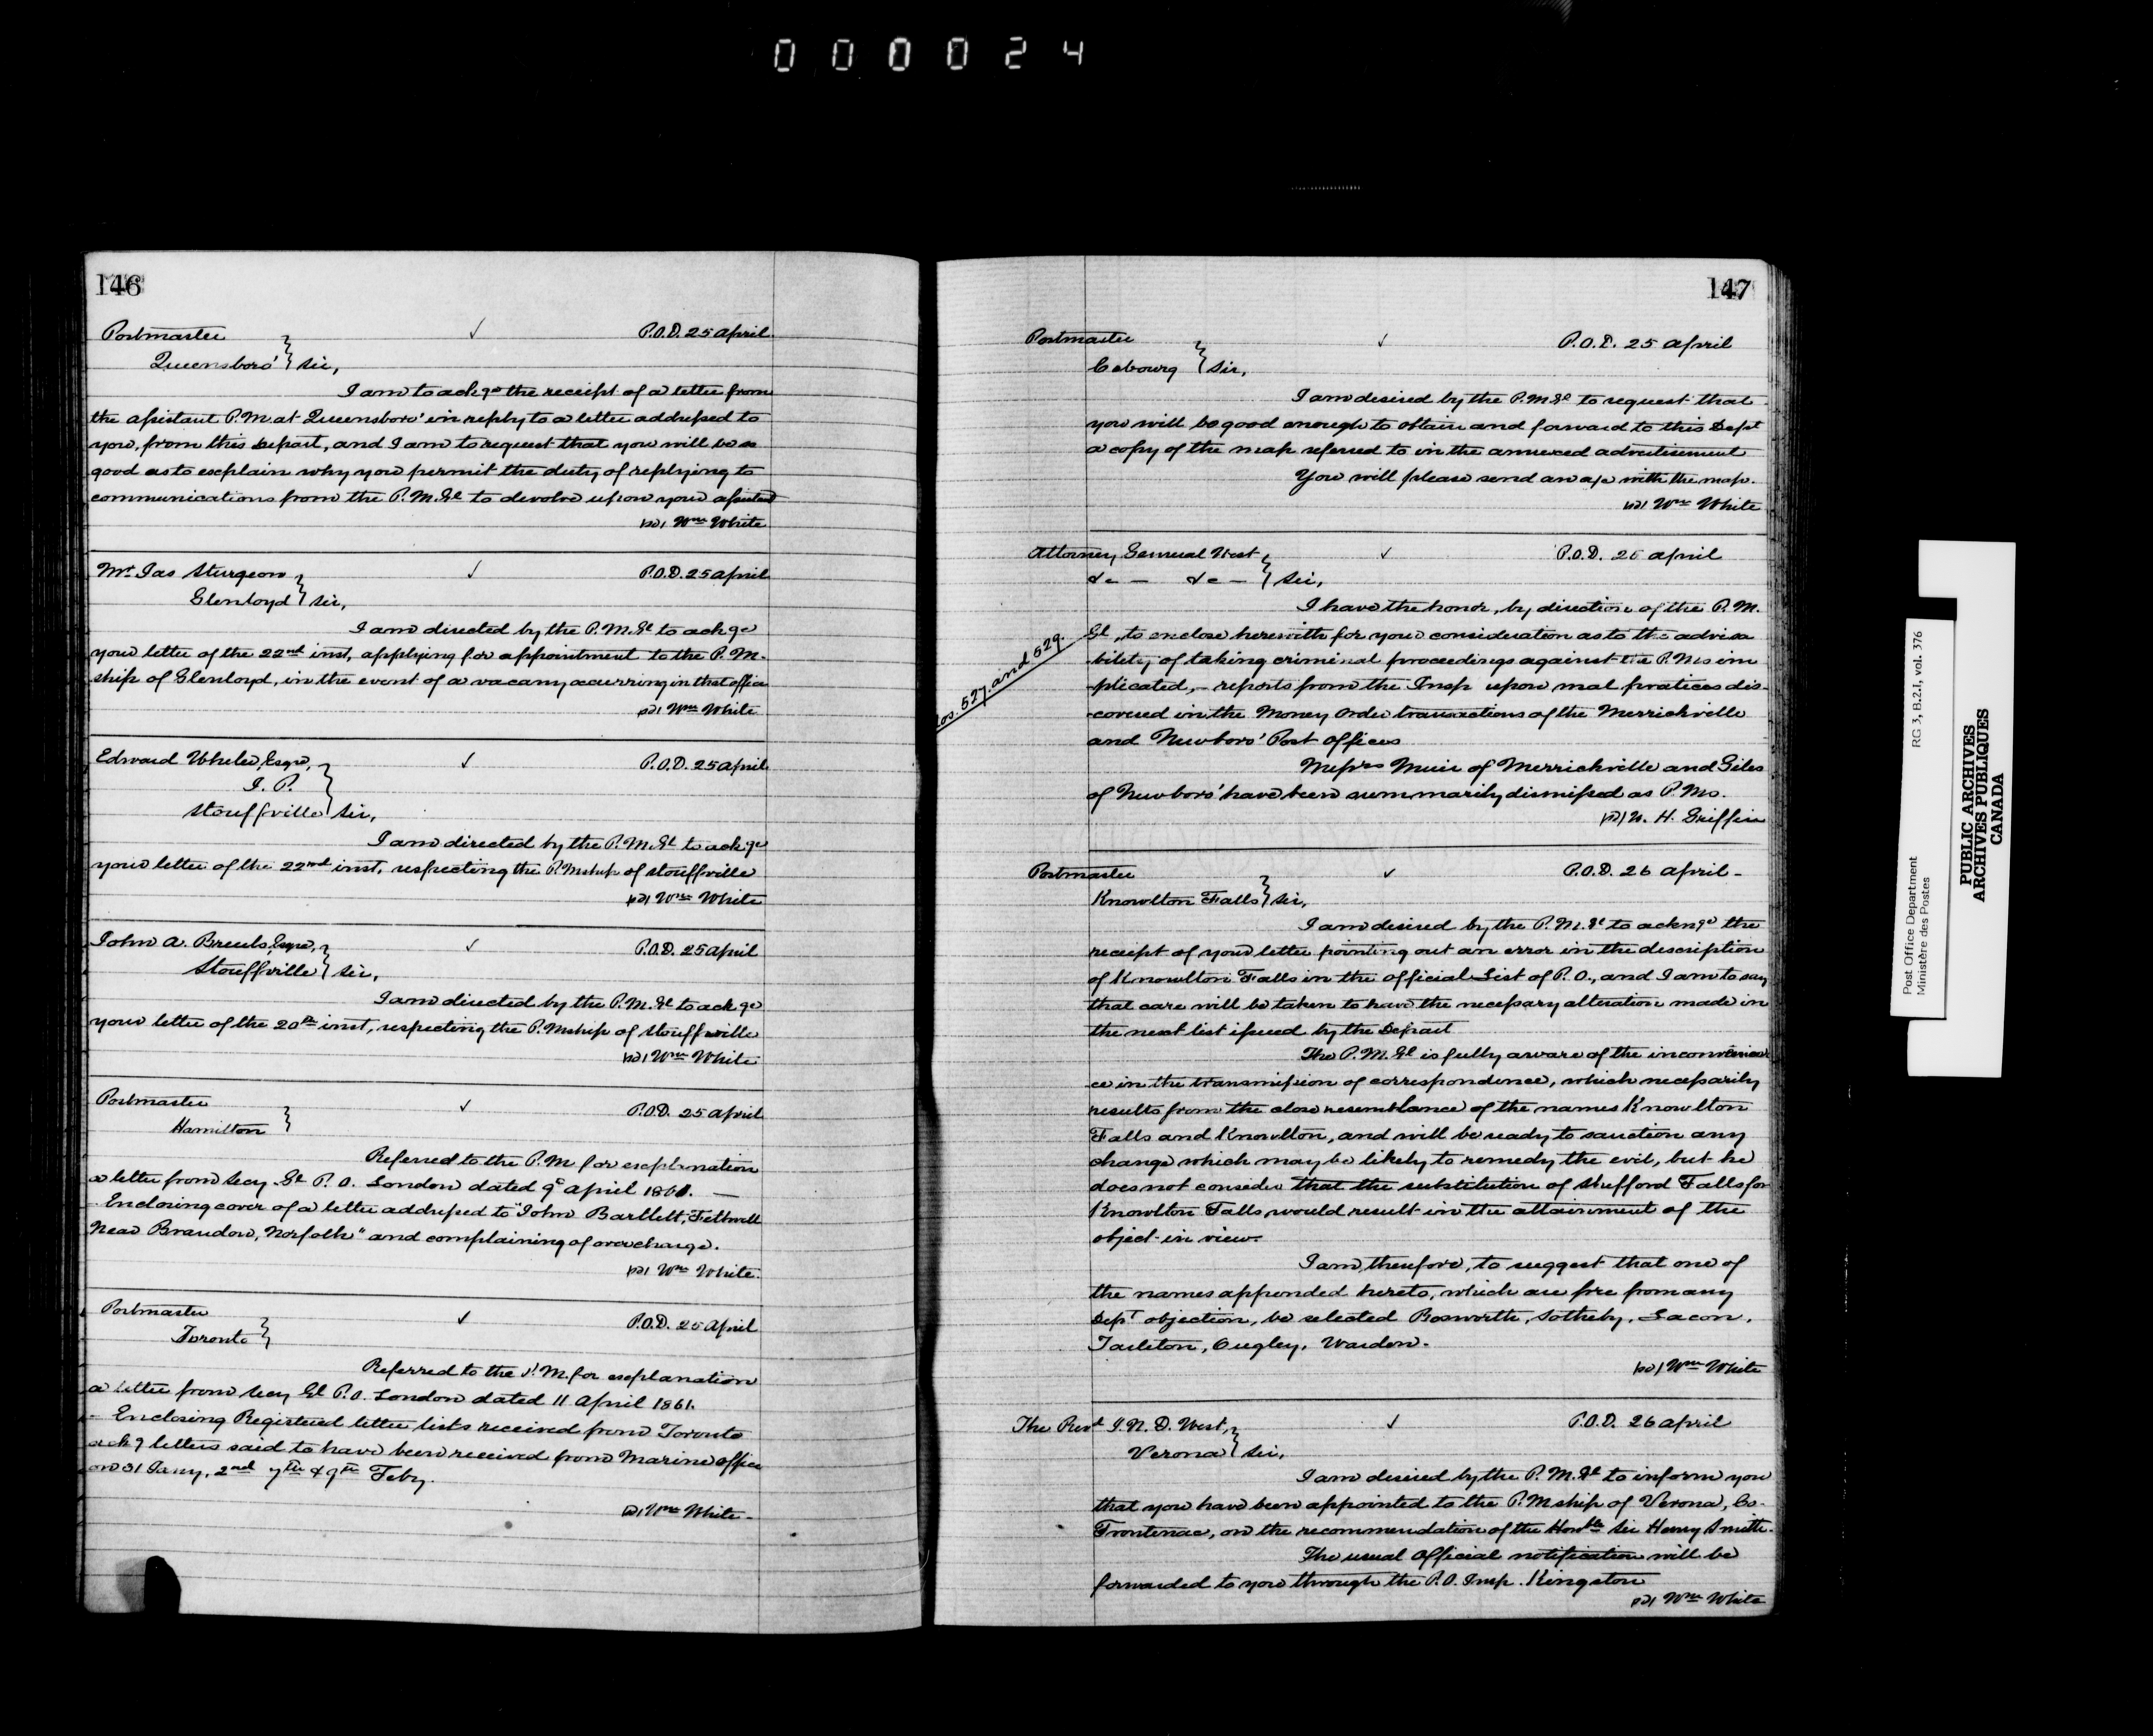 000024
146
Postmaster ✓ P.O.D. 25 April
Queensboro' } Sir,
I am to ackge the receipt of a letter from
the assistant P.M. at Queensboro' in reply to a letter addressed to
you, from this Depart, and I am to request that you will be so
good as to explain why you permit the duty of replying to
communications from the P.M.Gl to devolve upon your assistant
Wm White
Mr Jas Sturgeon ✓ P.O.D. 25 April
Glenloyd } Sir,
I am directed by the P.M.Gl to ackge
your letter of the 22nd inst, applying for appointment to the P.M.
ship of Glenloyd, in the event of a vacany occurring in that office
Wm White
Edward Wheler, Esqre, ✓ P.O.D. 25 April
J. P.
Stouffville } Sir,
I am directed by the P.M.Gl to ackge
your letter of the 22nd inst, respecting the P.Mship of Stouffville
Wm White
John A. Esqre, ✓ P.O.D. 25 April
Stouffville } Sir,
I am directed by the P.M.Gl to ackge
your letter of the 20th inst, respecting the P.Mship of Stouffville
Wm White
Postmaster ✓ P.O.D. 25 April
Hamilton }
Referred to the P.M. for explanation
a letter from Secy Gl P.O. London dated 9 April 1861. —
Enclosing cover of a letter addressed to "John Bartlett, Feltwell
Near Brandon, Norfolk" and complaining of overcharge.
Wm White
Postmaster ✓ P.O.D. 25 April
Toronto }
Referred to the P.M. for explanation
a letter from Secy Gl P.O. London dated 11 April 1861.
- Enclosing Registered letter lists received from Toronto
letters said to have been received from Marine Office
on 31 Jany, 2nd 7th & 9th Feby.
Wm White -
147
Postmaster ✓ P.O.D. 25 April
Cobourg } Sir,
I am desired by the P.M.Gl to request that
you will be good enough to obtain and forward to this Dept
a copy of the map referred to in the annexed advertisement
You will please send an a/c with the map.
Wm White
Attorney General West ✓ P.O.D. 26 April
&c — &c — } Sir,
I have the honor, by direction of the P.M.
Gl, to enclose herewith for your consideration as to the advisa
bility of taking criminal proceedings against the P.Ms im
-plicated, - reports from the Insp upon mal pratices dis-
-covered in the Money Order transactions of the Merrickville
and Newboro' Post Offices
Nos. 527. and 529.
Messrs Muir of Merrickville and Giles
of Newboro' have been summarily dismissed as P.Ms.
W. H. Griffin
Postmaster ✓ P.O.D. 26 April -
Knowlton Falls } Sir,
I am desired by the P.M.Gl to acknge the
receipt of your letter pointing out an error in the description
of Knowlton Falls in the Official List of P.O., and I am to say
that care will be taken to have the necessary alteration made in
the next list issued by the Depart
The P.M.Gl is fully aware of the inconvenien
ce in the transmission of correspondence, which necessarily
results from the close resemblance of the names Knowlton
Falls and Knowlton, and will be ready to sanction any
change which may be likely to remedy the evil, but he
does not consider that the substitution of Shefford Falls for
Knowlton Falls would result in the attainment of the
object in view.
I am, therefore, to suggest that one of
the names appended hereto, which are free from any
Dept objection, be selected Bosworth, Sotheby, Lacon,
Tarleton, Warden.
Wm White
The Revd J. N. D. West, ✓ P.O.D. 26 April
Verona } Sir,
I am desired by the P.M.Gl to inform you
that you have been appointed to the P.Mship of Verona, Co.
Frontenac, on the recommendation of the Honble Sir Henry Smith.
The usual official notification will be
forwarded to you through the P.O. Insp. Kingston
Wm White
Post Office Department RG 3, B.2.1, vol. 376
Ministère des Postes
PUBLIC ARCHIVES
ARCHIVES PUBLIQUES
CANADA